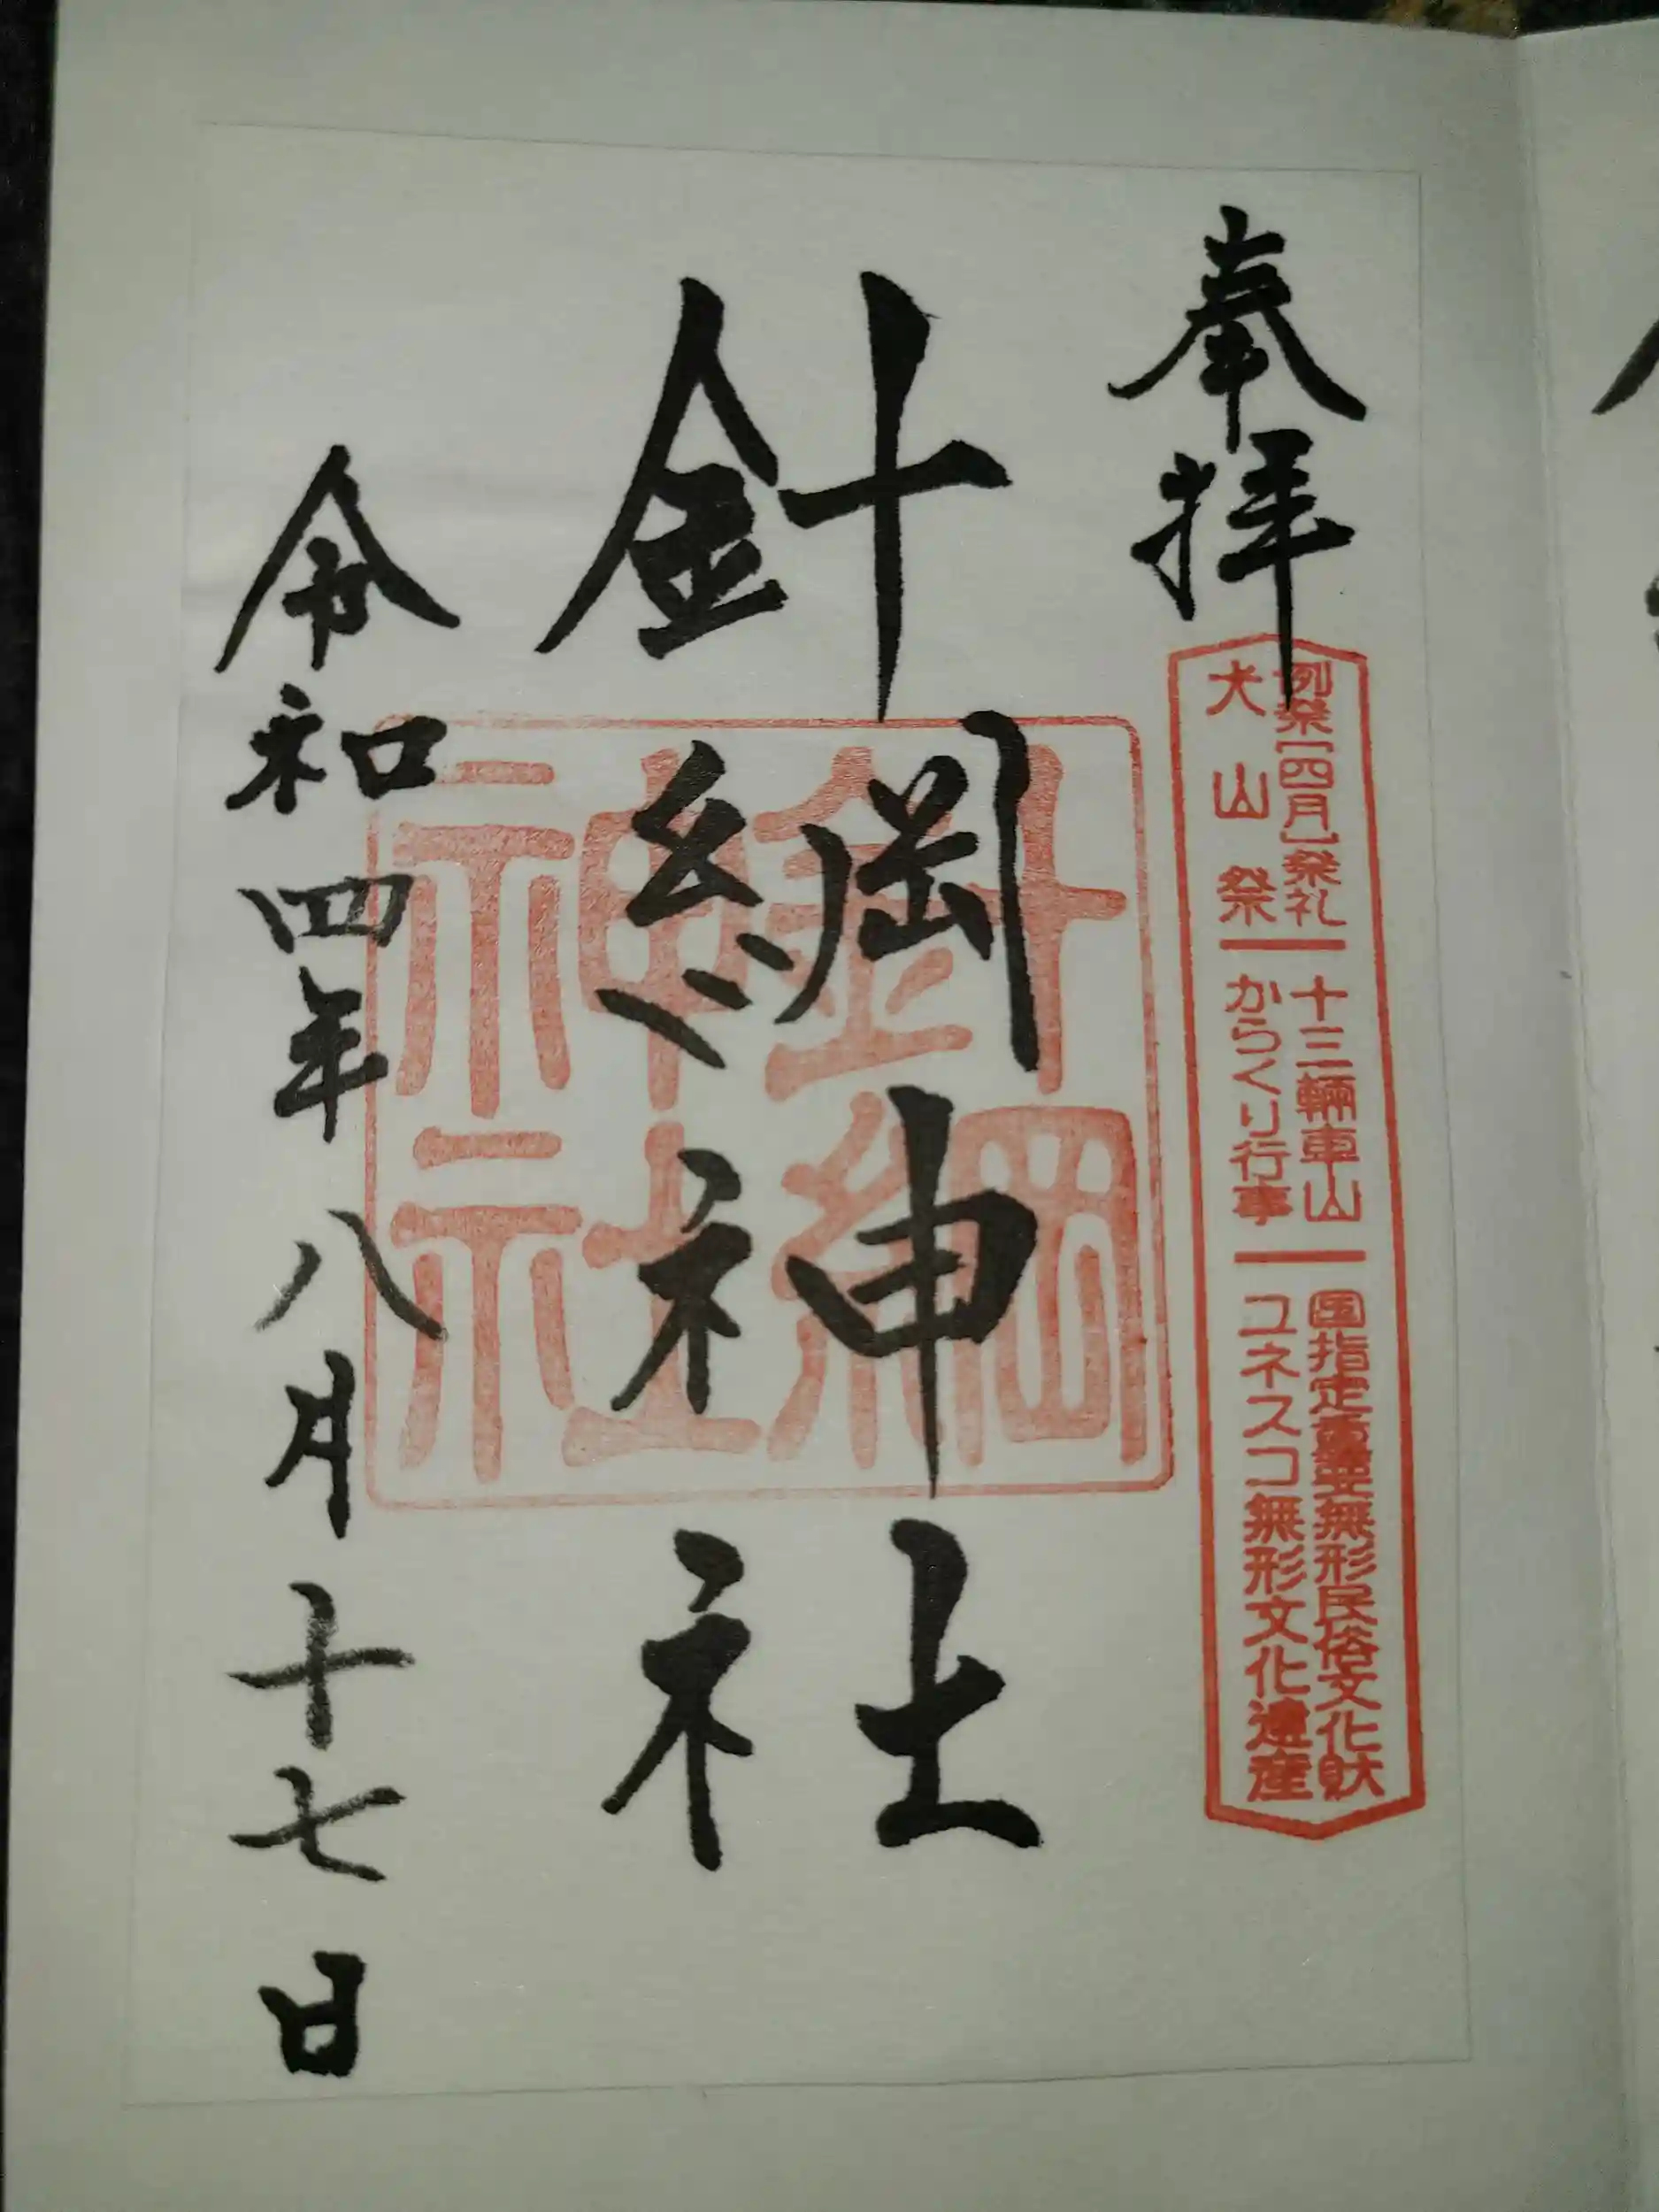 奉拝
例祭[四月]祭礼 十三輛車山 国指定重要無形民俗文化財
犬山祭 からくり行事 ユネスコ無形文化遺産
針綱神社
針綱
神社
令和四年八月十七日